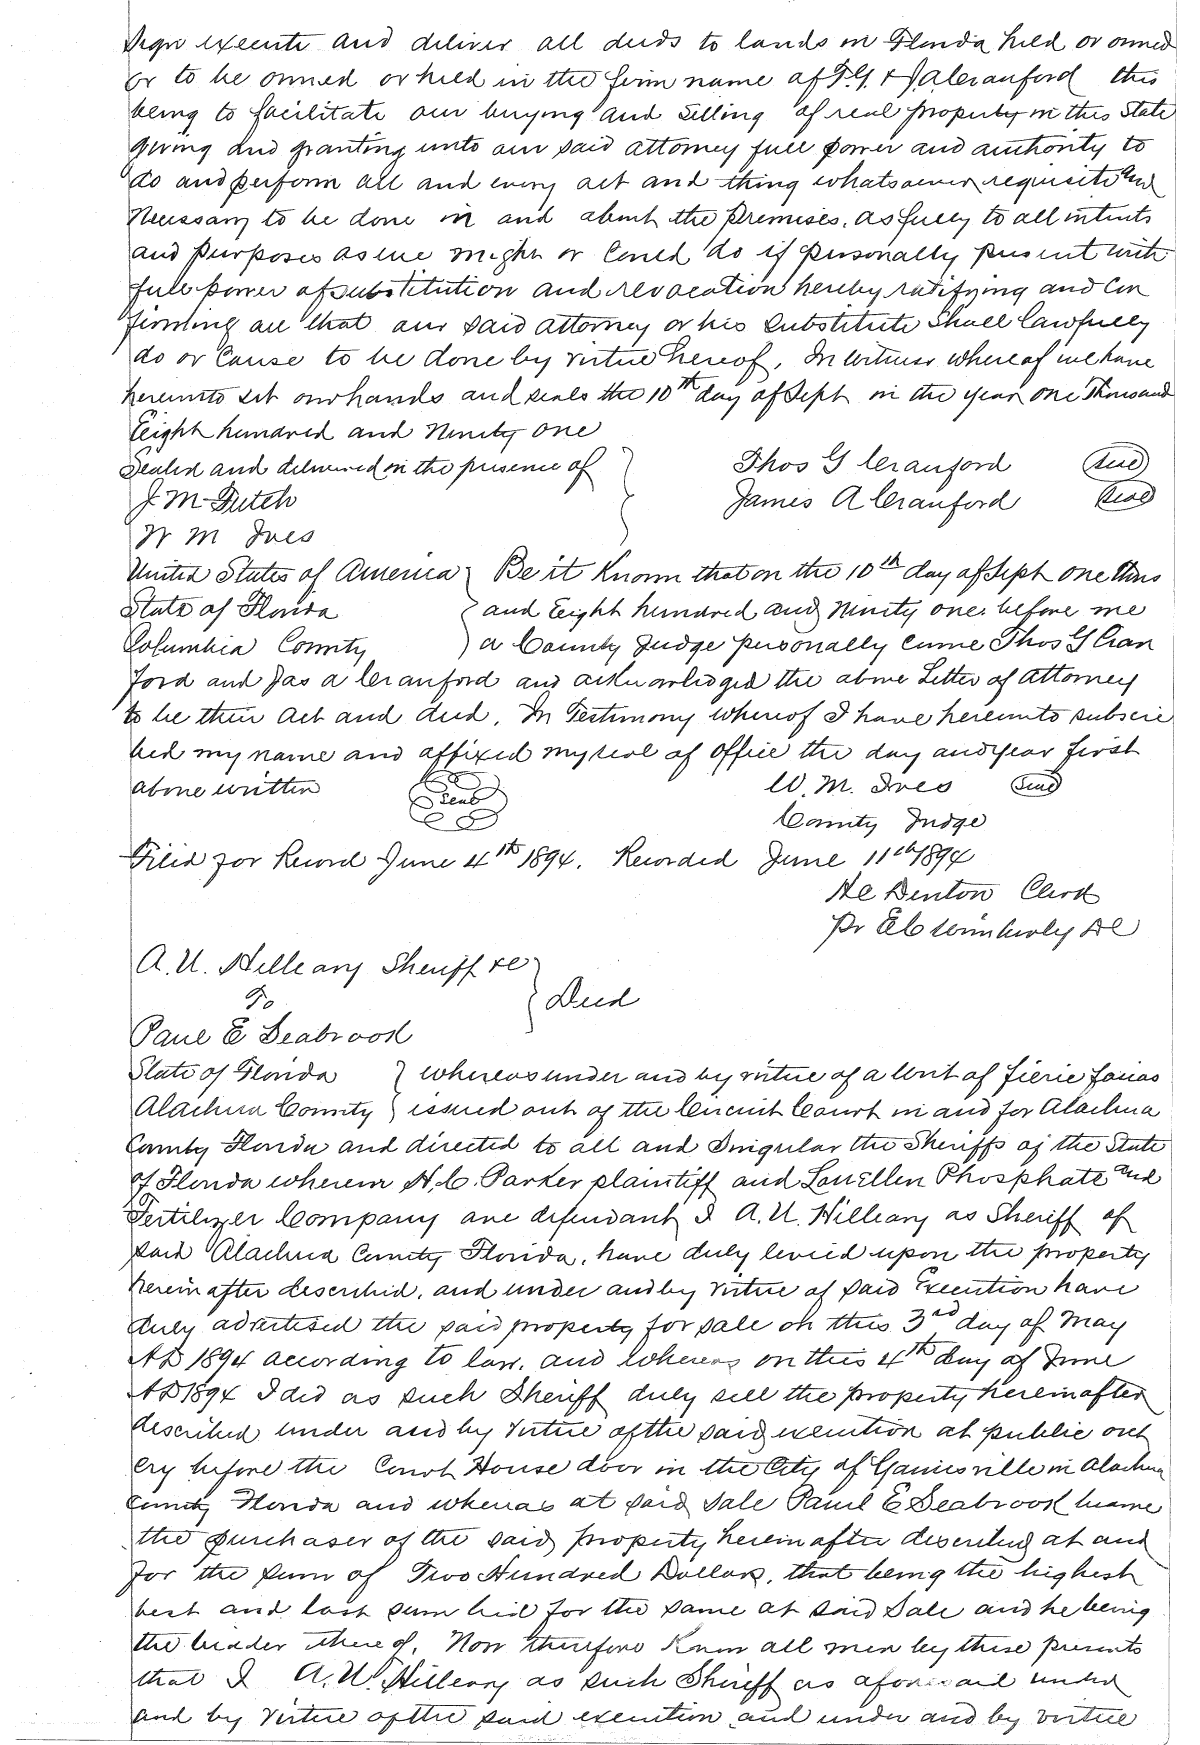 Sign execute and deliver all deeds to lands in Florida held or owned
or to be owned or held in the firm name of T.G. & J A Cranford this
being to facilitate our buying and selling of real property in this State
giving and granting unto our said attorney full power and authority to
do and perform all and every act and thing whatsoever requisite and
necessary to be done in and about the premises, as fully to all intents
and purposes as we might or could do if personally present with
full power of substitution and revocation hereby ratifying and con
firming all that our said attorney or his substitute Shall lawfully
do or cause to be done by virtue hereof. In witness whereof we have
hereunto set our hands and seals the 10th day of Sept in the year one Thousand
Eight hundred and Ninety one
Sealed and delivered in the presence of } Thos G Cranford (Seal)
J M Futch James A Cranford (Seal)
W M Ives
United States of America } Be it Known that on the 10th day of Sept one thous
State of Florida } and Eight hundred and Ninety one before me
Columbia County ) a County Judge personally came Thos G Cran
ford and Jas A Cranford and acknowledged the above Letter of Attorney
to be their act and deed. In Testimony whereof I have hereunto subscri
bed my name and affixed my seal of office the day and year first
above written (Seal) W. M. Ives (Seal)
County Judge
Filed for Record June 4th 1894. Recorded June 11th 1894
H C Denton Clerk
Pr E C Wimberly DC
A. U. Hilleary Sheriff &c
To } Deed
Paul E Seabrook
State of Florida } whereas under and by virtue of a Writ of fierie facias
Alachua County } issued out of the Circuit Court in and for Alachua
County Florida and directed to all and Singular the Sheriffs of the State
of Florida wherein H. C. Parker plaintiff and LouEllen Phosphate and
Fertilizer Company are defendant I A. U. Hilleary as Sheriff of
said Alachua County Florida, have duly levied upon the property
hereinafter described, and under and by virtue of said Execution have
duly advertised the said property for sale on this 3rd day of May
AD 1894 according to law, and whereas on this 4th day of June
AD 1894 I did as such Sheriff duly sell the property hereinafter
described under and by virtue of the said execution at public out
cry before the Court House door in the City of Gainesville in Alachua
County Florida and whereas at said Sale Paul E Seabrook became
the purchaser of the said property hereinafter described at and
for the sum of Two Hundred Dollars, that being the highest
best and last sum bid for the same at said Sale and he being
the bidder thereof. Now therefore Know all men by these presents
that I A. U. Hilleary as such Sheriff as aforesaid under
and by virtue of the said execution and under and by virtue